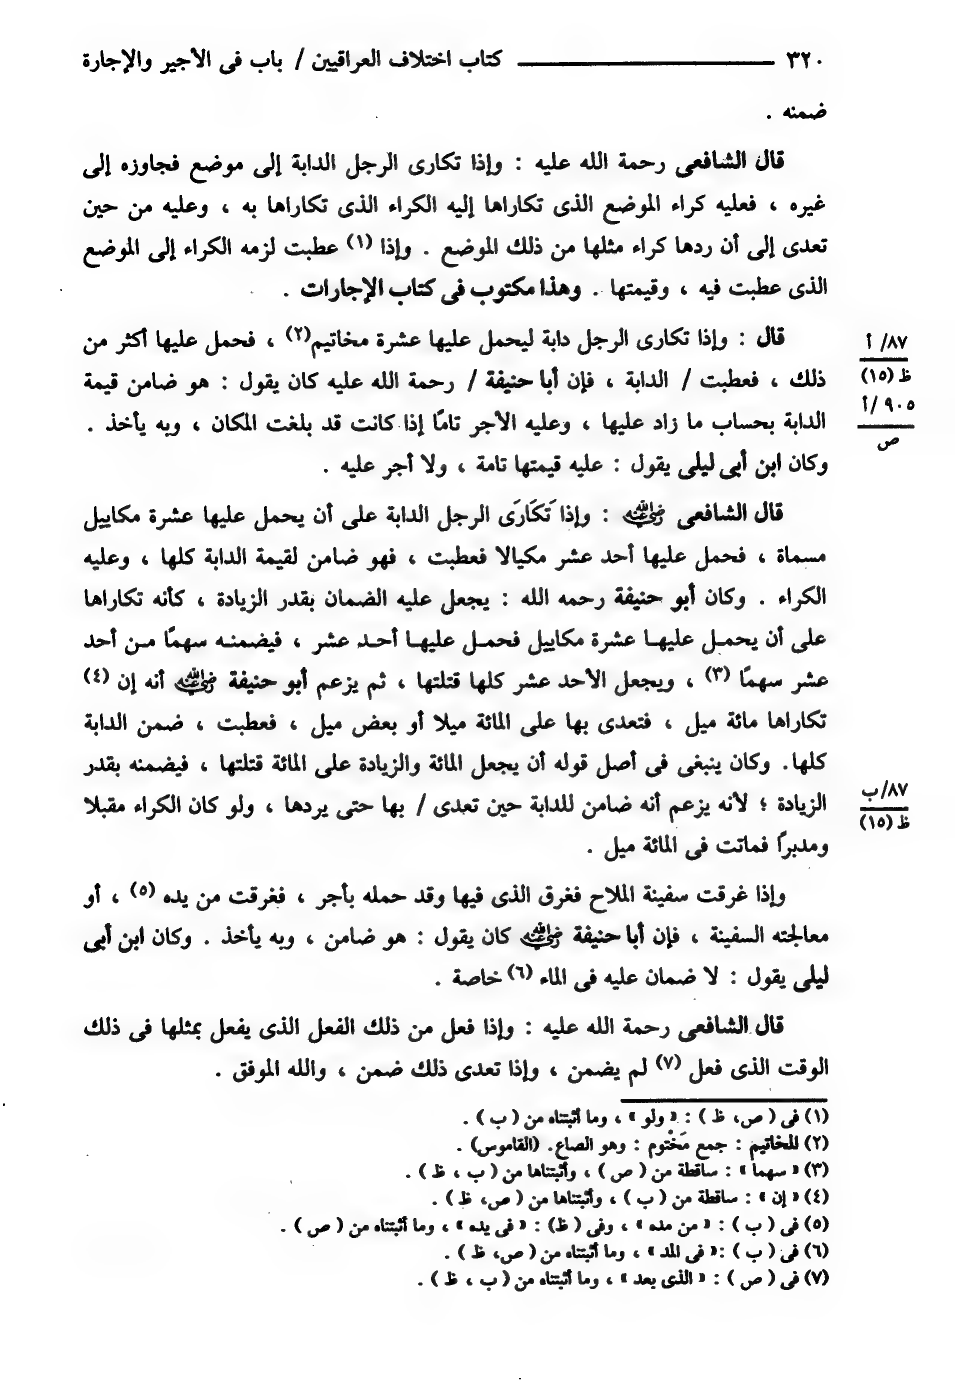 ٣٢٠ ــــــــــــ كتاب اختلاف العراقيين / باب فى الأجير والإجارة
ضمنه .
قال الشافعى رحمة الله عليه : وإذا تكارى الرجل الدابة إلى موضع فجاوزه إلى
غيره ، فعليه كراء الموضع الذى تكاراها إليه الكراء الذى تكاراها به ، وعليه من حين
تعدى إلى أن ردها كراء مثلها من ذلك الموضع . وإذا (١) عطبت لزمه الكراء إلى الموضع
الذى عطبت فيه ، وقيمتها . وهذا مكتوب فى كتاب الإجارات .
قال : وإذا تكارى الرجل دابة ليحمل عليها عشرة مخاتيم(٢) ، فحمل عليها أكثر من
ذلك ، فعطبت / الدابة ، فإن أبا حنيفة / رحمة الله عليه كان يقول : هو ضامن قيمة
الدابة بحساب ما زاد عليها ، وعليه الأجر تامًا إذا كانت قد بلغت المكان ، وبه يأخذ .
وكان ابن أبى ليلى يقول : عليه قيمتها تامة ، ولا أجر عليه .
٨٧/ أ
ظ (١٥)
٩٠٥ /أ
ص
قال الشافعى رضي الله عنه : وإذا تَكَارَى الرجل الدابة على أن يحمل عليها عشرة مكاييل
مسماة ، فحمل عليها أحد عشر مكيالا فعطبت ، فهو ضامن لقيمة الدابة كلها ، وعليه
الكراء . وكان أبو حنيفة رحمه الله : يجعل عليه الضمان بقدر الزيادة ، كأنه تكاراها
على أن يحمل عليها عشرة مكاييل فحمل عليها أحد عشر ، فيضمنه سهمًا من أحد
عشر سهمًا (٣) ، ويجعل الأحد عشر كلها قتلتها ، ثم يزعم أبو حنيفة رضي الله عنه أنه إن (٤)
تكاراها مائة ميل ، فتعدى بها على المائة ميلا أو بعض ميل ، فعطبت ، ضمن الدابة
كلها. وكان ينبغى فى أصل قوله أن يجعل المائة والزيادة على المائة قتلتها ، فيضمنه بقدر
الزيادة ؛ لأنه يزعم أنه ضامن للدابة حين تعدى / بها حتى يردها ، ولو كان الكراء مقبلا
ومدبرًا فماتت فى المائة ميل .
٨٧/ب
ظ (١٥)
وإذا غرقت سفينة الملاح فغرق الذى فيها وقد حمله بأجر ، فغرقت من يده (٥) ، أو
معالجته السفينة ، فإن أبا حنيفة رضي الله عنه كان يقول : هو ضامن ، وبه يأخذ . وكان ابن أبى
ليلى يقول : لا ضمان عليه فى الماء (٦) خاصة .
قال الشافعى رحمة الله عليه : وإذا فعل من ذلك الفعل الذى يفعل بمثلها فى ذلك
الوقت الذى فعل (٧) لم يضمن ، وإذا تعدى ذلك ضمن ، والله الموفق .
(١) فى ( ص، ظ ) : « ولو » ، وما أثبتناه من ( ب ) .
(٢) المخاتيم : جمع مَخْتوم : وهو الصاع. (القاموس) .
(٣) « سهما » : ساقطة من ( ص ) ، وأثبتناها من ( ب ، ظ ) .
(٤) « إن » : ساقطة من ( ب ) ، وأثبتناها من ( ص، ظ ) .
(٥) فى ( ب ) : « من مده » ، وفى ( ظ) : « فى يده » ، وما أثبتناه من ( ص ) .
(٦) فى ( ب ) :« فى المد » ، وما أثبتناه من ( ص، ظ ) .
(٧) فى ( ص ) : « الذى بعد » ، وما أثبتناه من ( ب ، ظ ) .